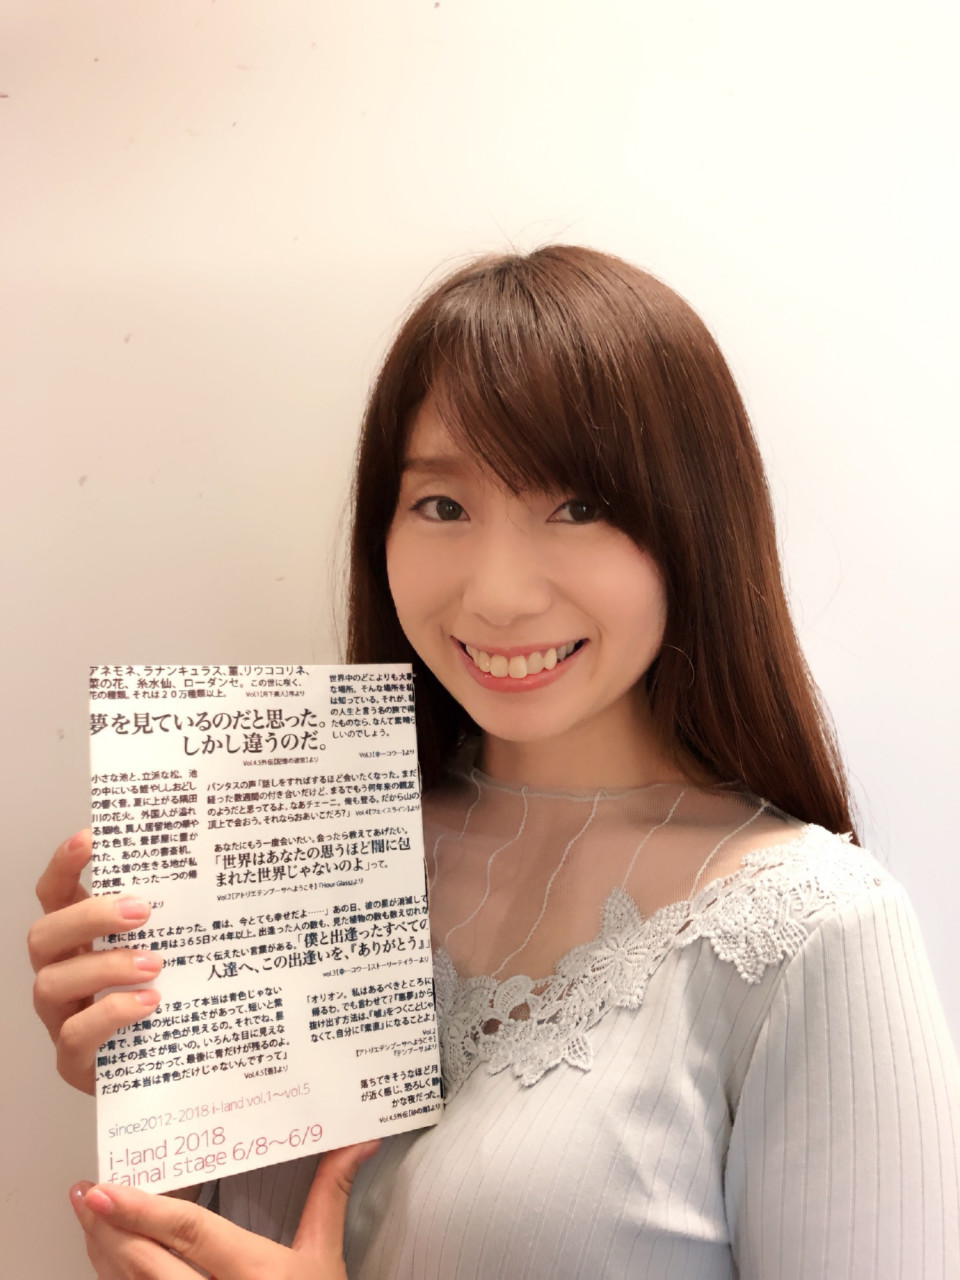 アネモネ、ラナンキュラス、菫、リウココリネ、
菜の花、糸水仙、ローダンセ。この世に咲く、
花の種類、それは20万種類以上。
夢を見ているのだと思った。
しかし違うのだ。
Vol.4.5外伝【記憶の迷宮】より
世界中のどこよりも大事
な場所。そんな場所を私
は知っている。それが、私
の人生と言う名の旅で得
たものなら、なんて素晴ら
しいのでしょう。
Vol.3【幸―コウ―】より
小さな池と、立派な松、池
の中にいる鯉やししおどし
の響く音。夏に上がる隅田
川の花火。外国人が溢れ
る築地、異人居留地の華や
かな色彩。畳部屋に置か
れた、あの人の書斎机。
そんな彼の生きる地が私
の故郷。たった一つの帰
より
パンタスの声「話しをすればするほど会いたくなった。まだ
経った数週間の付き合いだけど、まるでもう何年来の親友
のようだと思ってるよ、なあチェーニ。俺も登る。だから山の
頂上で会おう。それならおあいこだろ?」
Vol.4【フェイスライン】より
あなたにもう一度会いたい。会ったら教えてあげたい。
「世界はあなたの思うほど闇に包
まれた世界じゃないのよ」って。
Vol.2【アトリエテンプーサへようこそ】「Hour Glass」より
「君に出会えてよかった。僕は、今とても幸せだよ……」あの日、彼の星が消滅して
歳月は365日×4年以上。出逢った人の数も、見た植物の数も数え切れが
分け隔てなく伝えたい言葉がある。「僕と出逢ったすべての
人達へ、この出逢いを、『ありがとう』」
vol.3【幸―コウ―】ストーリーテイラーより
る?空って本当は青色じゃない
?」「太陽の光には長さがあって、短いと紫
や青で、長いと赤色が見えるの。それでね、昼
間はその長さが短いの。いろんな目に見えな
いものにぶつかって、最後に青だけが残るのよ。
だから本当は青色だけじゃないんですって」
「オリオン。私はあるべきところに
帰るわ、でも言わせて?『悪夢』から
抜け出す方法は、『嘘』をつくことじゃ
なくて、自分に『素直』になることよ」
Vol.2
【アトリエテンプーサへようこそ】
『テンプーサ』より
落ちてきそうなほど月
が近く感じ、恐ろしく静
かな夜だった。
since2012-2018 i-land vol.1～vol.5
i-land 2018
fainal stage 6/8～6/9